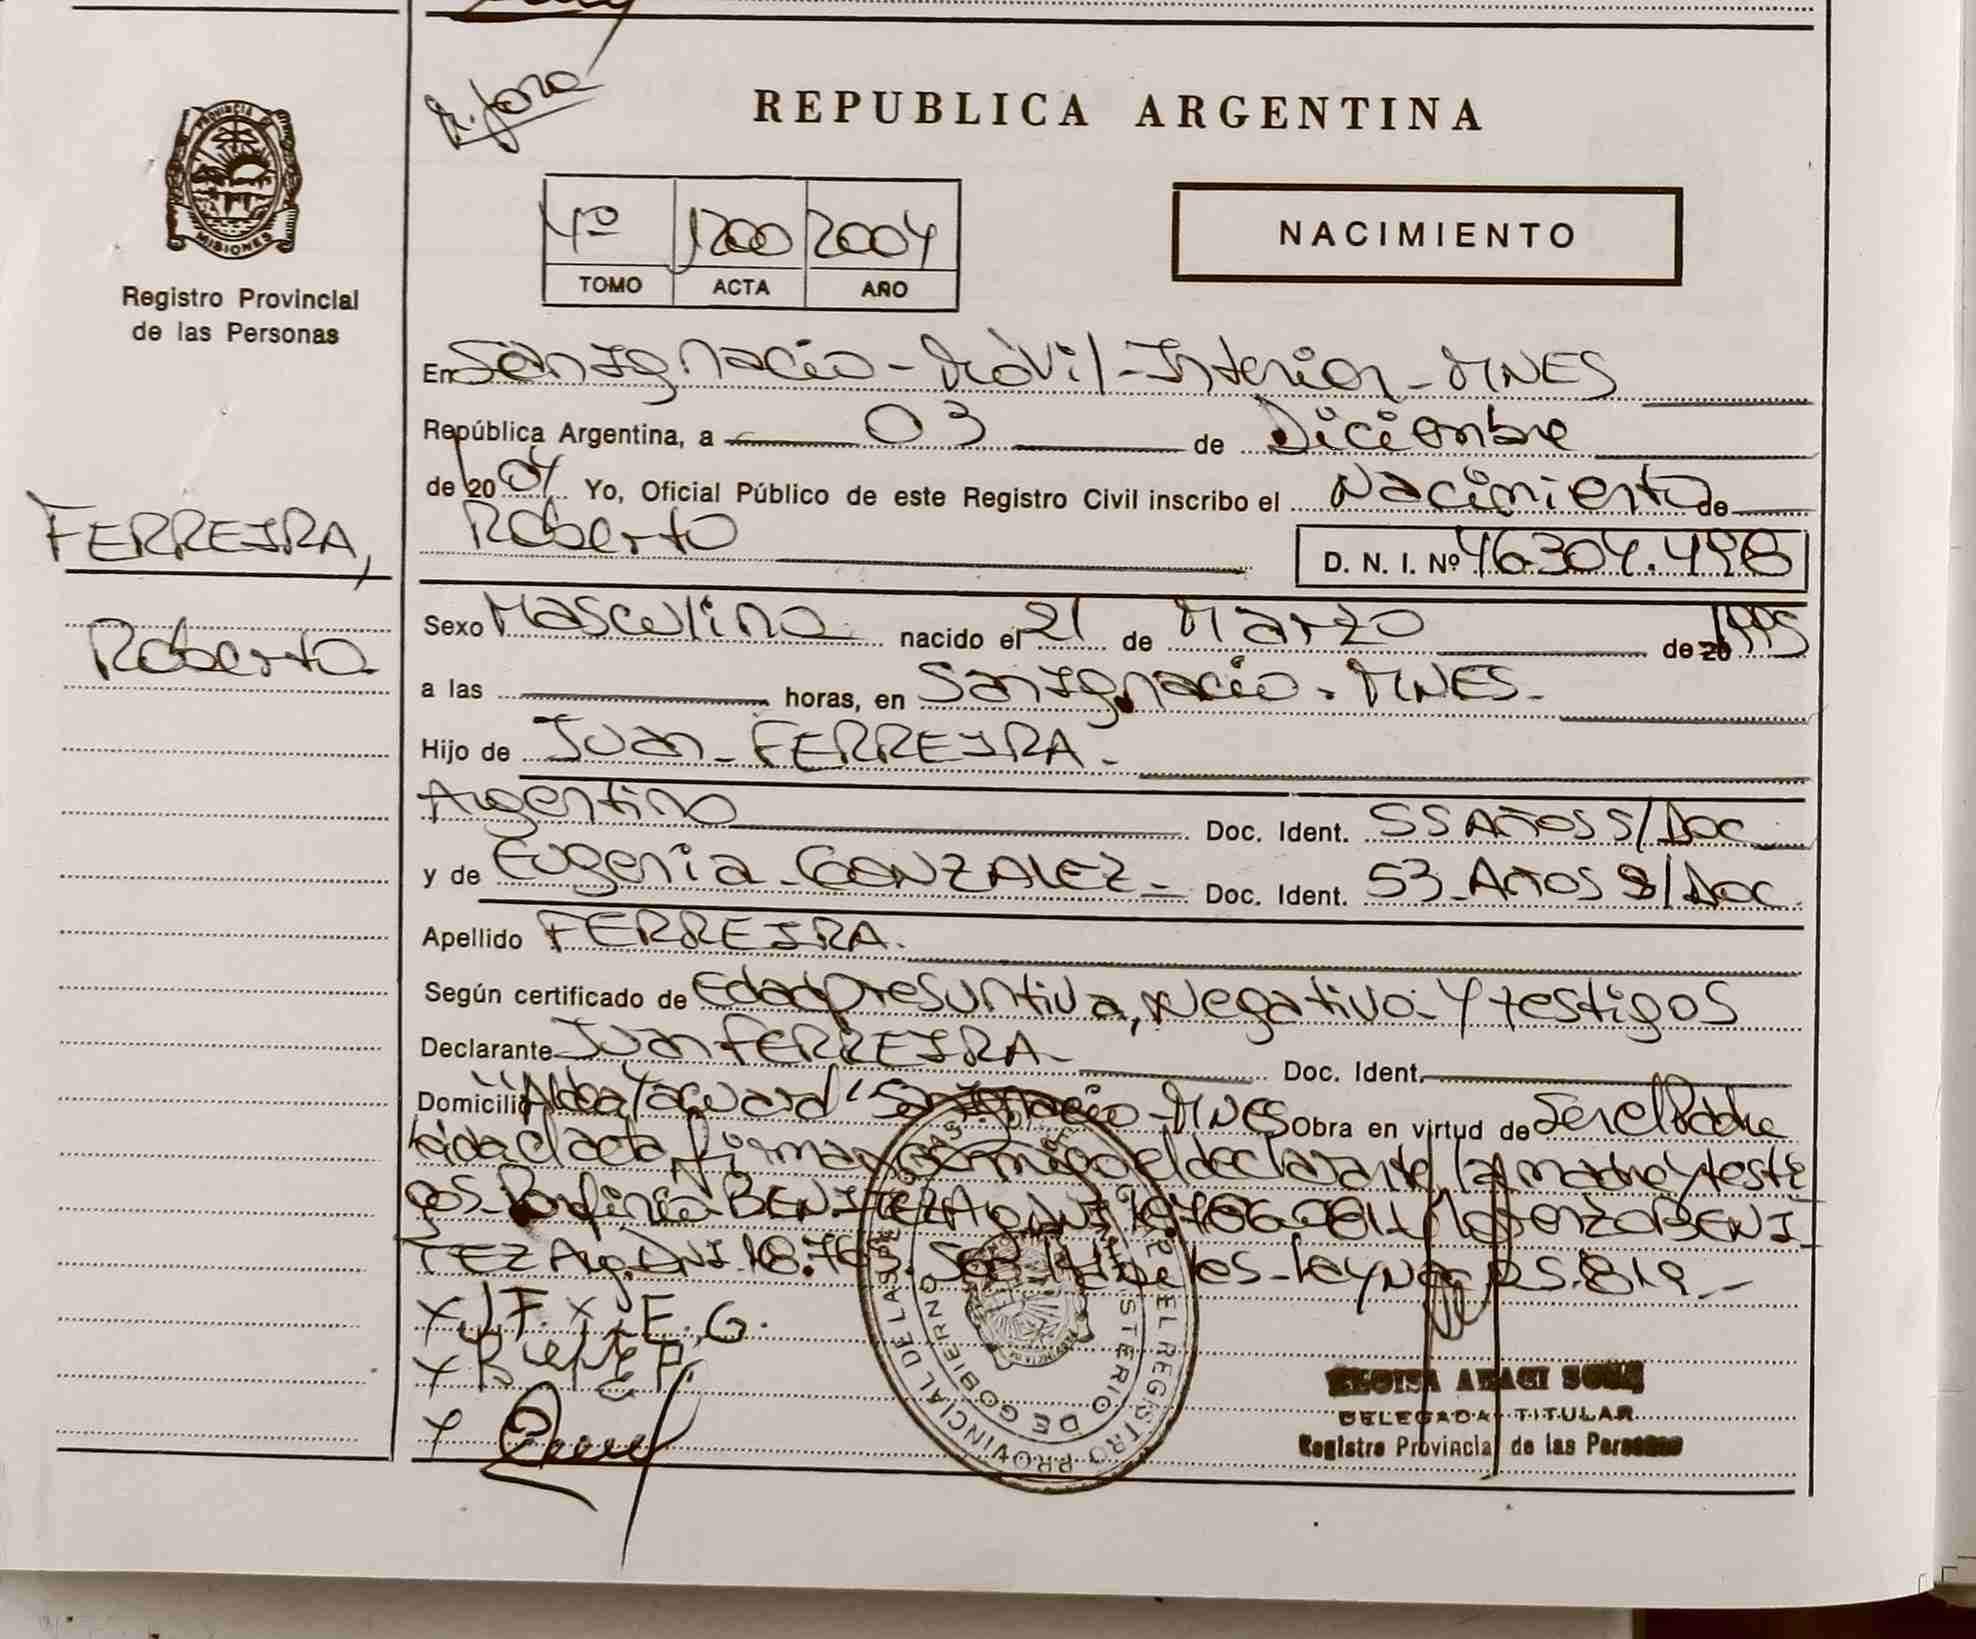 R. fora
REPUBLICA ARGENTINA
PROVINCIA DE
MISIONES
Registro Provincial
de las Personas
4º 1200 2004
TOMO ACTA AÑO
NACIMIENTO
En San Ignacio - Móvil - Interior - MNES
República Argentina, a 03 de Diciembre
de 2004 Yo, Oficial Público de este Registro Civil inscribo el Nacimiento de
Roberto D. N. I. Nº 46.304.498
FERREIRA,
Roberto
Sexo Masculino nacido el 21 de Marzo de 20 1995
a las horas, en San Ignacio. MNES.
Hijo de Juan - FERREIRA -
Argentino Doc. Ident. 55 Años S/Doc
y de Eugenia - GONZALEZ - Doc. Ident. 53 Años S/Doc.
Apellido FERREIRA.
Según certificado de Edad presuntiva, Negativo y testigos
Declarante Juan FERREIRA - Doc. Ident.
Domicilio "Aldea Yacutí" San Ignacio - MNES Obra en virtud de Ser el Padre
Leida el acta, firman conmigo el declarante, la madre y testi
gos. Porfirio BENITEZ Arg. DNI Lorenzo BENI
TEZ Arg. DNI 18.765. Ley Nac 25.819 -
X J. F. X E. G.
X
X
REGISTRO PROVINCIAL DE LAS PERSONAS
MINISTERIO DE GOBIERNO
DELEGADA TITULAR
Registro Provincial de las Personas